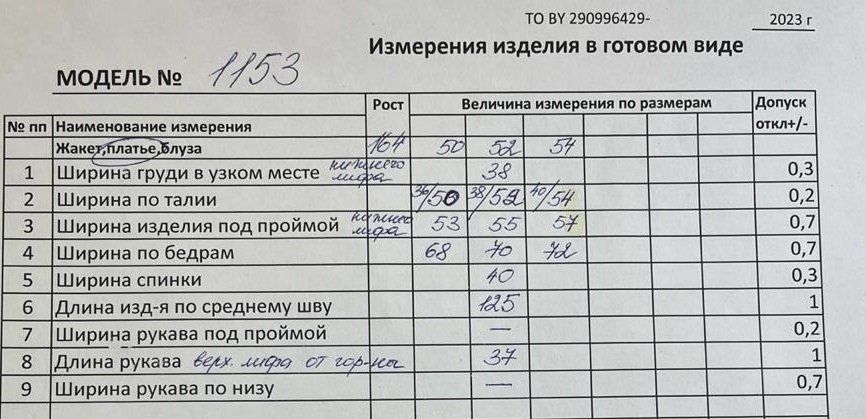 ТО BY 290996429- 2023 г
Измерения изделия в готовом виде
МОДЕЛЬ № 1153
№ пп Наименование измерения Рост Величина измерения по размерам Допуск откл+/-
Жакет,платье,блуза 164 50 52 54
1 Ширина груди в узком месте нижнего лифа 38 0,3
2 Ширина по талии 36/50 38/52 40/54 0,2
3 Ширина изделия под проймой нижнего лифа 53 55 57 0,7
4 Ширина по бедрам 68 70 72 0,7
5 Ширина спинки 40 0,3
6 Длина изд-я по среднему шву 125 1
7 Ширина рукава под проймой — 0,2
8 Длина рукава верх. лифа от гор-ны 37 1
9 Ширина рукава по низу — 0,7